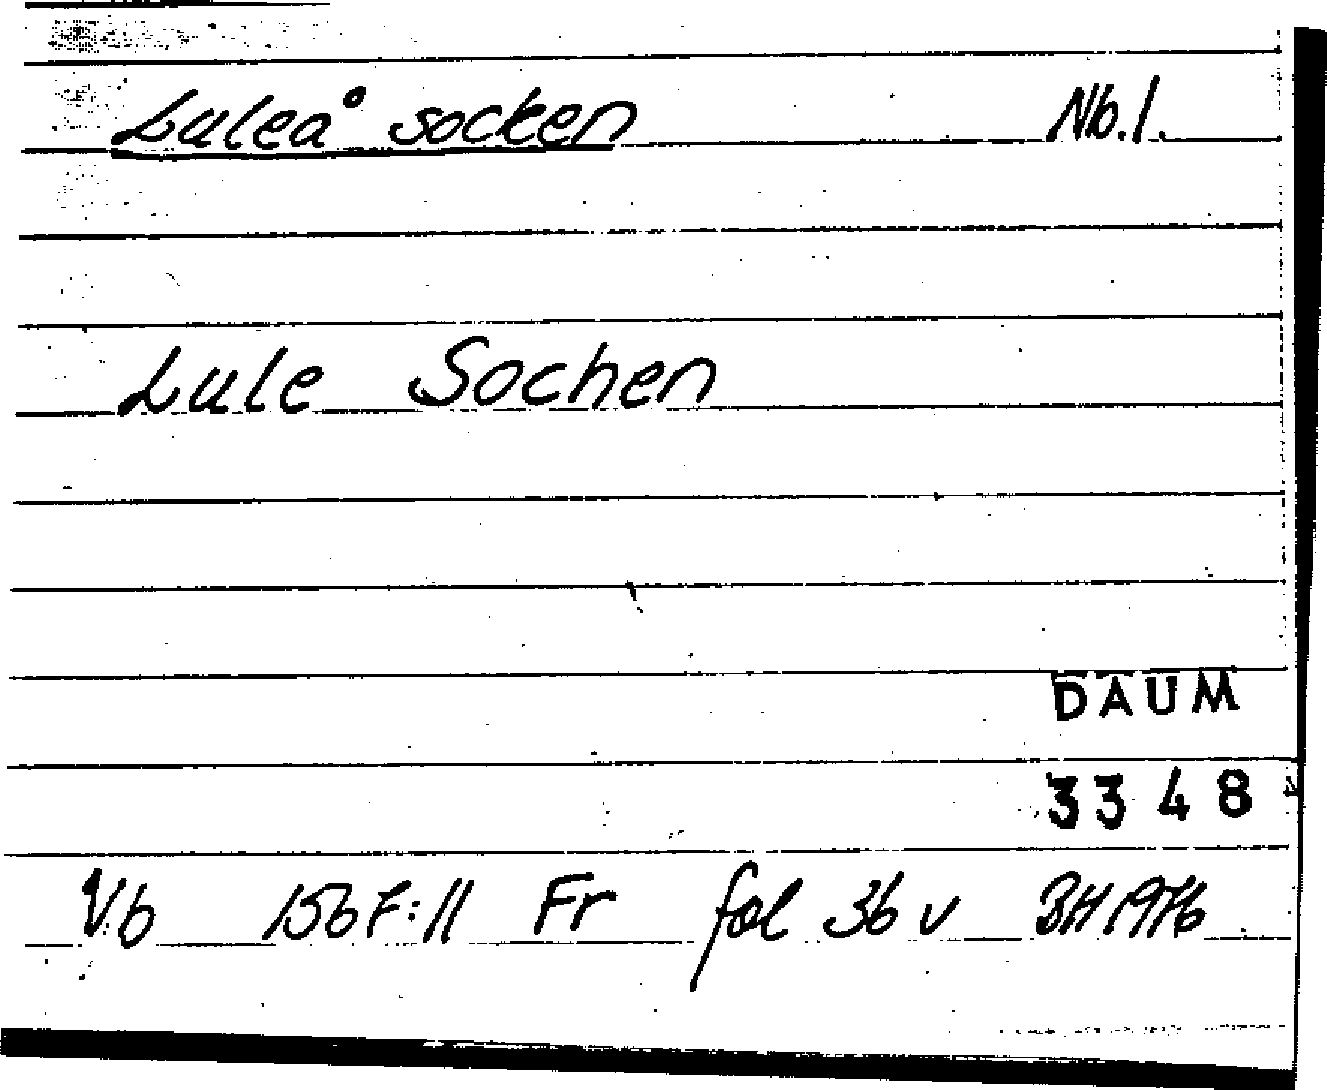 Luleå socken Nb.l.
Lule Sochen
DAUM
3348
Vb 1567:11 Fr fol 36 v BH 1976